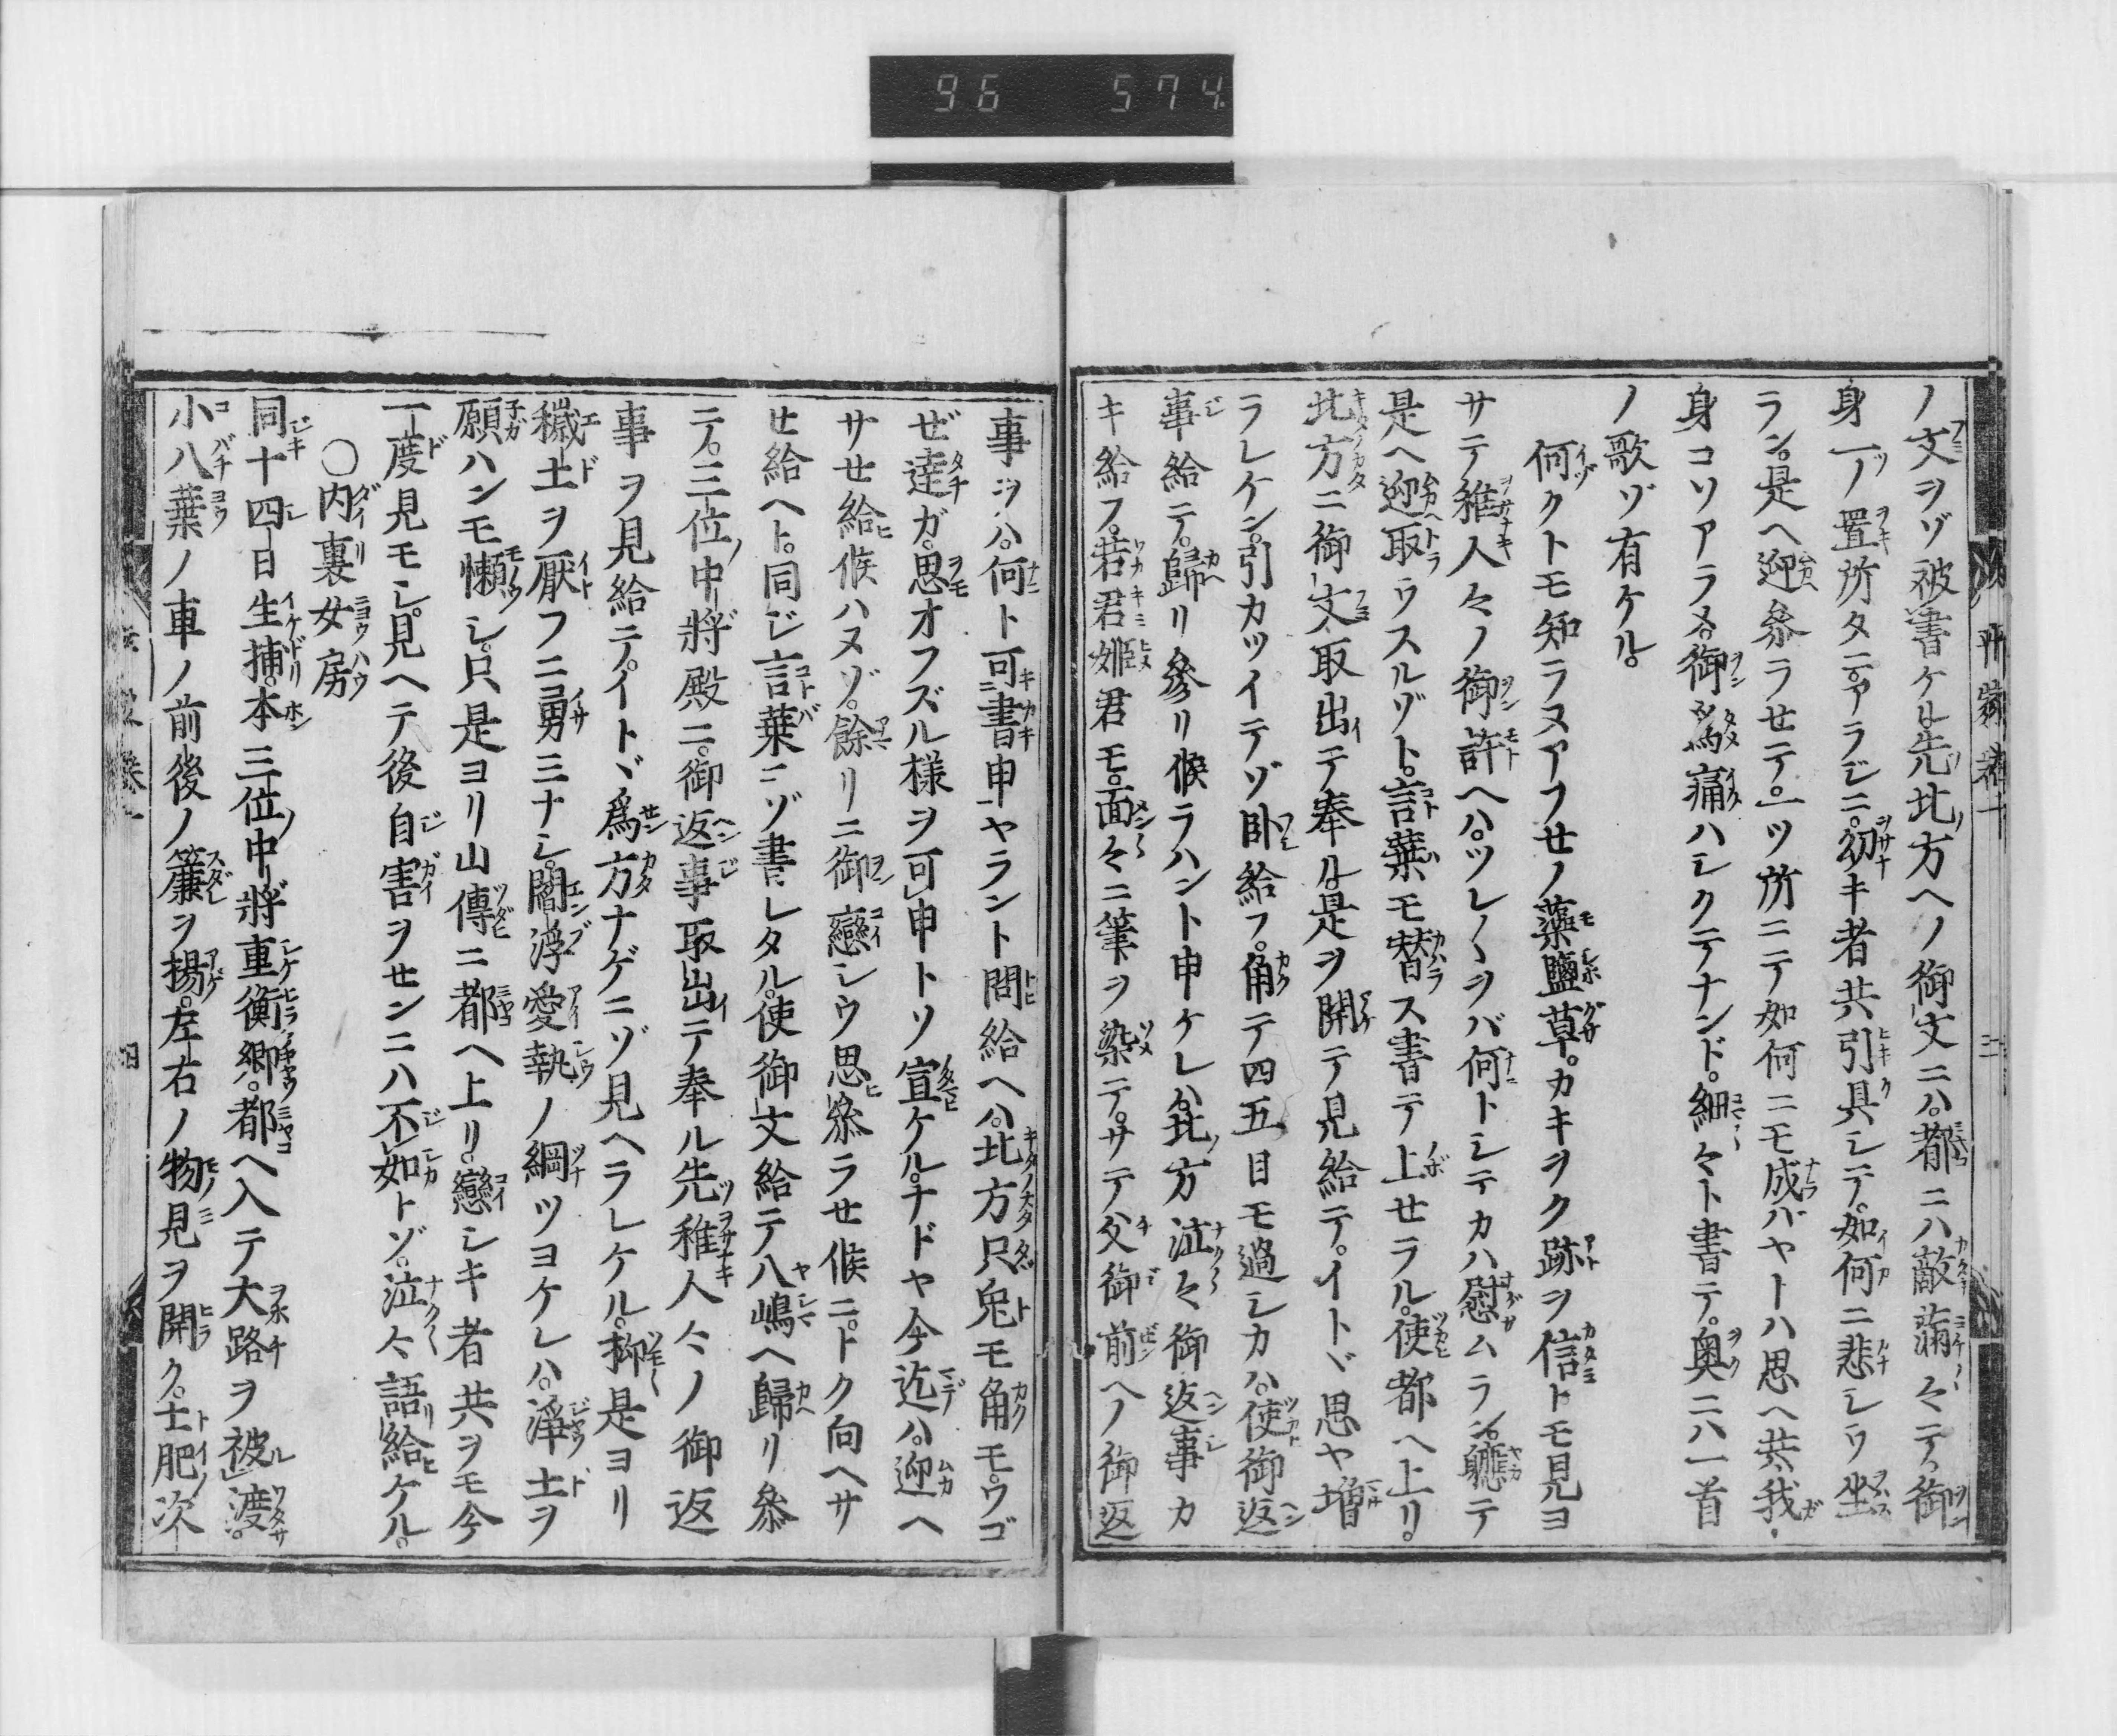 96 574
ノ文ヲゾ被書ケル先北方ヘノ御文ニハ。都ニハ敵満々テ。御
身一ノ置所タニ。アラジニ。幼キ者共引具シテ。如何ニ悲シウ坐
ラン。是ヘ迎参ラせテ。一ツ所ニテ如何ニモ成バヤトハ思ヘ共。我
身コソアラメ。御為痛ハシクテナンド。細々ト書テ。奥ニハ一首
ノ歌ゾ有ケル。
何クトモ知ラヌアフせノ藻鹽草。カキヲク跡ヲ信トモ見ヨ
サテ稚人々ノ御許ヘハ。ツレ〱ヲバ何トシテカハ慰ムラン。軈テ
是ヘ迎取ウスルゾト。言葉モ替ス書テ上せラル。使都ヘ上リ。
北方ニ御文取出テ奉ル。是ヲ開テ見給テ。イトヾ思ヤ増
ラレケン。引カツイテゾ臥給フ。角テ四五日モ過シカハ。使御返
事給テ。歸リ參リ候ラハント申ケレハ。北方泣々御返事カ
キ給フ。若君姫君モ。面々ニ筆ヲ染テ。サテ父御前ヘノ御返
事ヲハ。何ト可書申ヤラント問給ヘハ。北方只兎モ角モ。ウゴ
ぜ達ガ。思オフズル様ヲ可申トソ宣ケル。ナドヤ今迄ハ。迎ヘ
サせ給候ハヌゾ。餘リニ御戀シウ思參ラせ候ニ。トク向ヘサ
せ給ヘト。同ジ言葉ニゾ書レタル。使御文給テ八嶋ヘ歸リ參
テ。三位中將殿ニ。御返事取出テ奉ル先稚人々ノ御返
事ヲ見給テ。イトヾ爲方ナゲニゾ見ヘラレケル。抑是ヨリ
穢土ヲ厭フニ勇ミナシ。閻浮愛執ノ綱ツヨケレハ。淨土ヲ
願ハンモ懶シ。只是ヨリ山傳ニ都ヘ上リ。戀シキ者共ヲモ今
一度見モシ。見ヘテ後自害ヲせンニハ不如トゾ。泣々語給ケル。
○内裏女房
同十四日生捕。本三位中將重衡卿。都ヘ入テ大路ヲ被渡。
小八葉ノ車ノ前後ノ簾ヲ揚。左右ノ物見ヲ開ク。土肥次